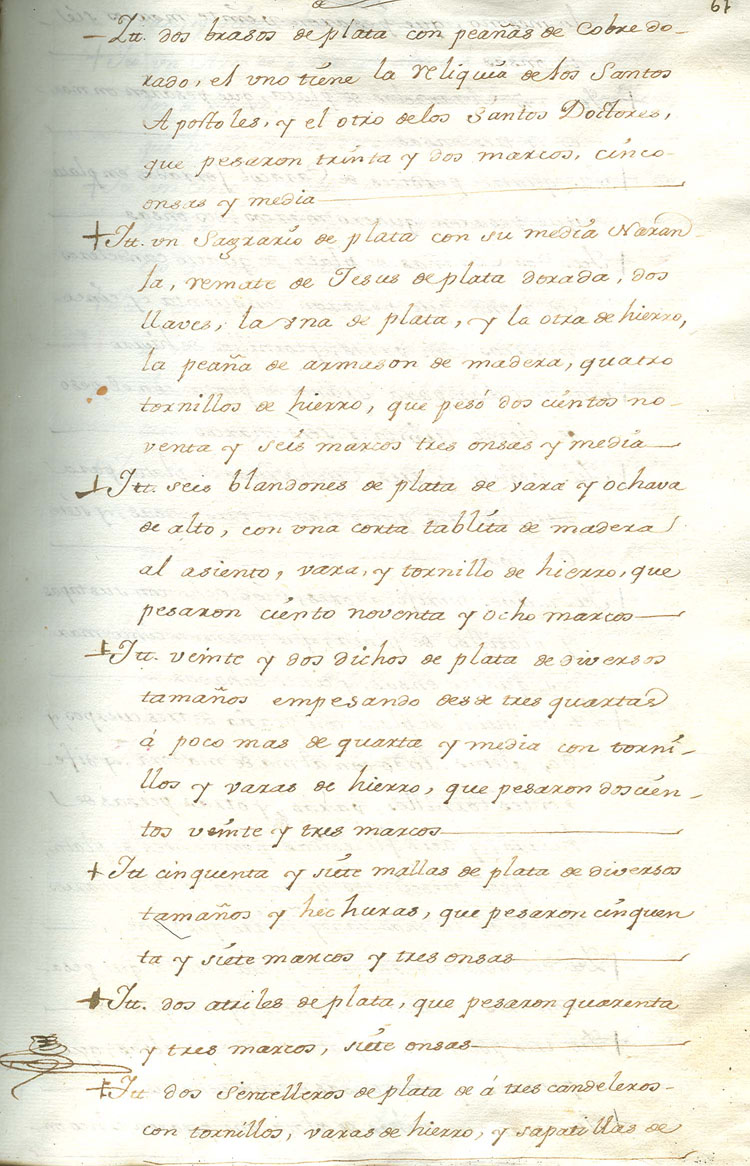 67
– Itt. dos brasos de plata con peañas de Cobre do-
rado, el vno tiene la reliquia de los Santos
Apostoles, y el otro delos Santos Doctores,
que pesaron trinta y dos marcos, cinco
onsas y media
+ Itt. vn Sagrario de plata con su media Naran
la, remate de Jesus de plata dorada, dos
llaves, la vna de plata, y la otra de hierro,
la peaña de armason de madera, quatro
tornillos de hierro, que pesó dos cientos no-
venta y seis marcos tres onsas y media
+ Itt. seis blandones de plata de vara y ochava
de alto, con vna corta tablita de madera
al asiento, vara, y tornillo de hierro, que
pesaron ciento noventa y ocho marcos
+ Itt. veinte y dos dichos de plata de diversos
tamaños empesando desde tres quartas
á poco mas de quarta y media con torni-
llos y varas de hierro, que pesaron doscien-
tos veinte y tres marcos
+ Itt cinquenta y siete mallas de plata de diversos
tamaños y hechuras, que pesaron cinquen
ta y siete marcos y tres onsas
+ Itt. dos atriles de plata, que pesaron quarenta
y tres marcos, siete onsas
+ Itt dos sentelleros de plata de á tres candeleros
con tornillos, varas de hierro, y sapatillas de